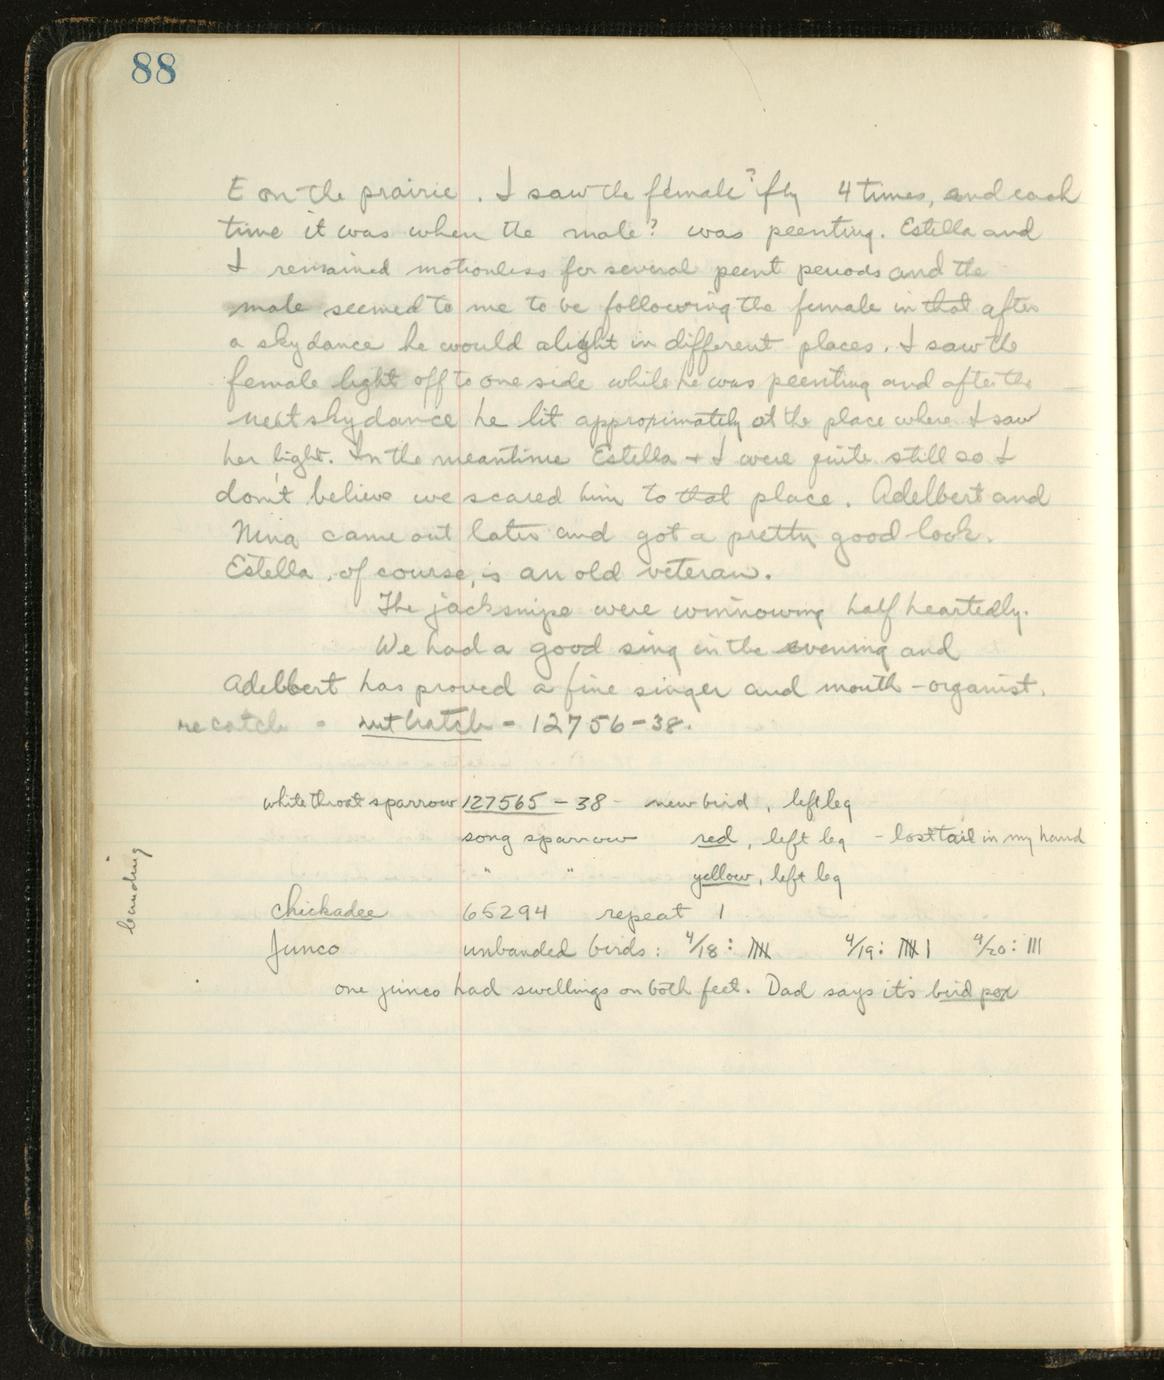 88
E on the prairie. I saw the female? fly 4 times, and each
time it was when the male? was peenting. Estella and
I remained motionless for several peent periods and the
male seemed to me to be following the female in that after
a skydance he would alight in different places. I saw the
female light off to one side while he was peenting and after the
next skydance he lit approximately at the place where I saw
her light. In the meantime Estella + I were quite still so I
don't believe we scared him to that place. Adelbert and
Nina came out later and got a pretty good look.
Estella, of course, is an old veteran.
The jacksnipe were winnowing half heartedly.
We had a good sing in the evening and
Adelbert has proved a fine singer and mouth-organist.
recatch - nuthatch - 12756-38.
banding
whitethroat sparrow 127565 - 38 - new bird, left leg
song sparrow red, left leg - lost tail in my hand
" " yellow, left leg
chickadee 65294 repeat 1
Junco unbanded birds: 4/18: 𝍸 4/19: 𝍸 | 4/20: |||
one junco had swellings on both feet. Dad says it's bird pox